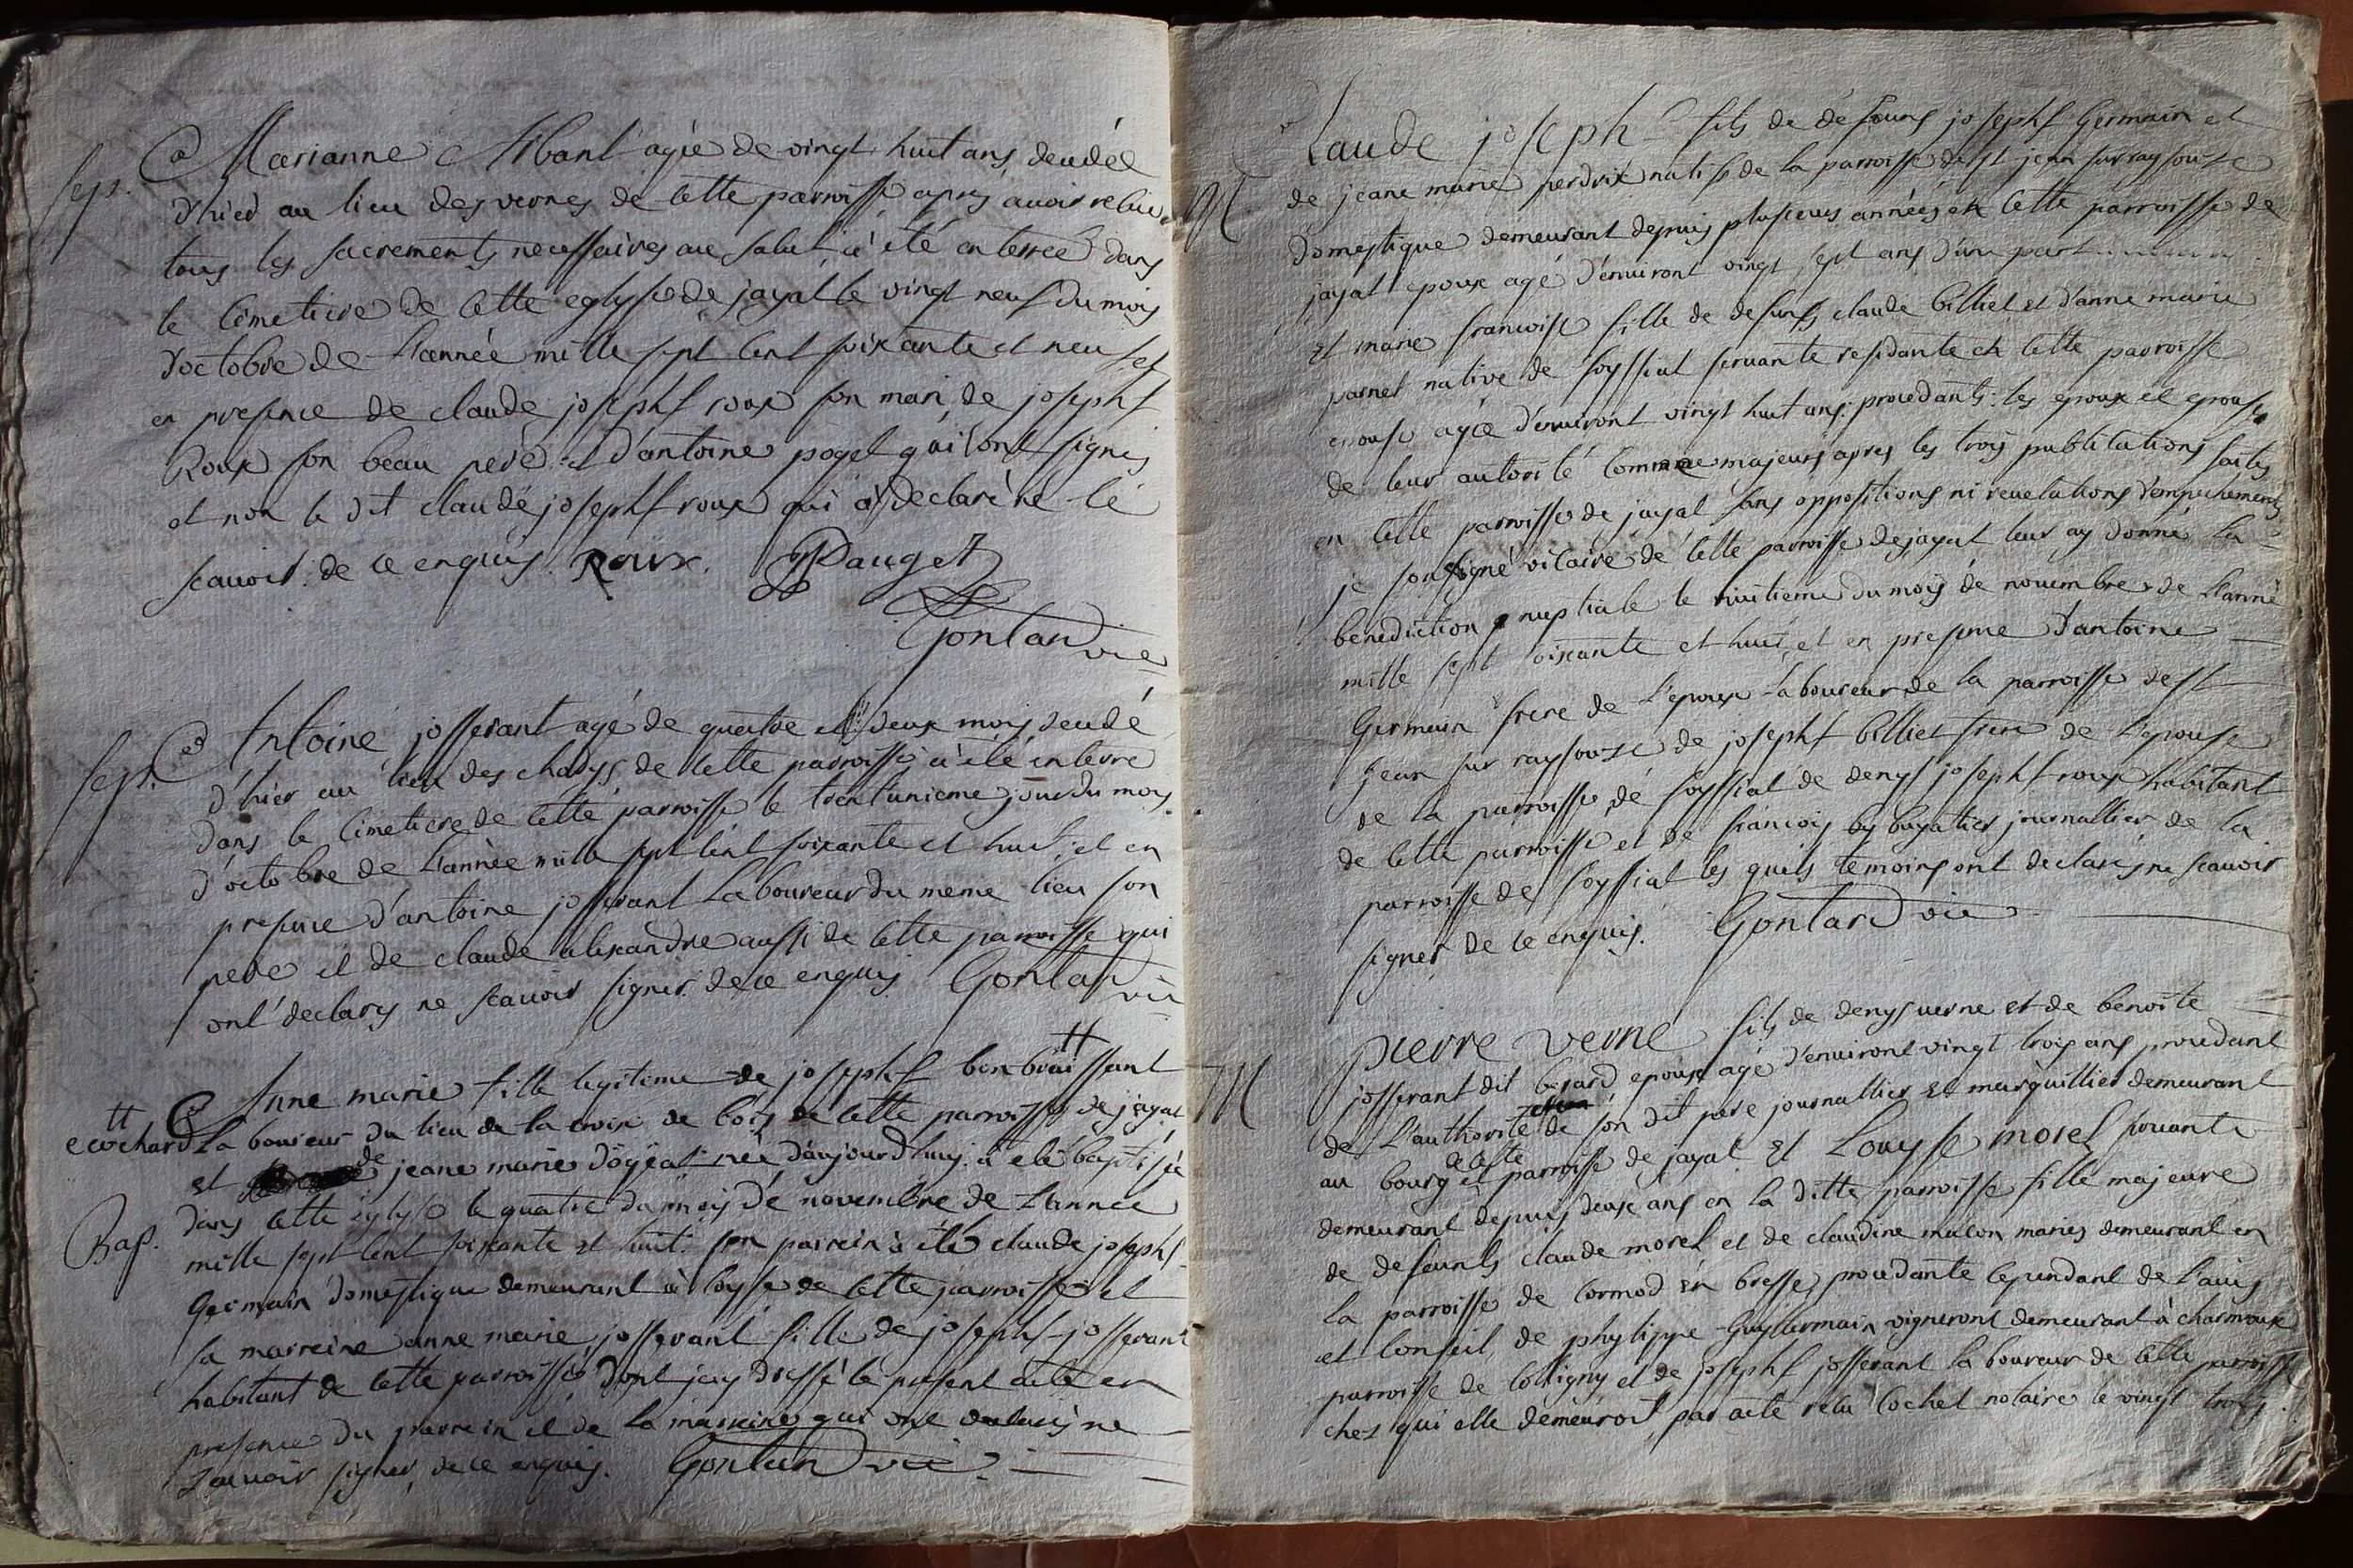 Sep. Marianne Alban agée de vingt huit ans, decedée
d'hier au lieu des vernes de cette parroisse apres avoir recu
tous les sacrements necessaires au salut, a été enterrée dans
le cimetiere de cette eglyse de jayat le vingt neuf du mois
d'octobre de l'année mille sept cent soixante et neuf et
en presence de claude josephf roux son mari, de josephf
Roux son beau pere et d'antoine poget qui ont signés
et non le dit claude josephf roux qui a declaré ne le
scavoir de ce enquis. Roux. Pauget
Gontard vic
Sep. Antoine josserant agé de quatre et deux mois decedé
d'hier au lieu des chanys de cette parroisse a été enterré
dans le cimetiere de cette parroisse le trentunieme jour du mois
d'octobre de l'année mille sept cent soixante et huit, et en
presence d'antoine josserant laboureur du meme lieu son
pere et de claude alexandre aussi de cette parroisse qui
ont declarés ne scavoir signer de ce enquis Gontard vic
Anne marie fille legitime de josephf bonbruissant #
# ecochard laboureur du lieu de la croix de bois de cette parroisse de jayat
et de jeane marie dogeat née d'aujourd'huy a été baptisée
Bap. dans cette eglyse le quatre du mois de novembre de l'année
mille sept cent soixante et huit. son parrein a été claude josephf
Germain domestique demeurant a loysse de cette parroisse et
sa marreine anne marie josserant fille de josephf josserant
habitant de cette parroisse dont jay dressé le present acte en
presence du parrein et de la marreine qui ont declarés ne
scavoir signer, de ce enquis. Gontard vic
Claude joseph fils de defunts josephf Germain et
M de jeane marie perdrix natif de la parroisse de st jean sur raysouze
domestique demeurant depuis plusieurs années en cette parroisse de
jayat epoux agé d'environt vingt sept ans d'une part
et marie francoise fille de defunts claude billiet et d'anne marie
parnet native de foyssiat servante residante en cette parroisse
epouse agée d'environt vingt huit ans: procedants les epoux et epouse
de leur autorité comme majeurs apres les trois publications faites
en cette parroisse de jayat sans oppositions ni revelations d'empechements
je soussigné vicaire de cette parroisse de jayat leur ay donné la
benediction nuptiale le huitieme du mois de novembre de l'année
mille sept soixante et huit, et en presence d'antoine
Germain frere de l'epoux laboureur de la parroisse de st
jean sur raysouze de josephf billiet frere de l'epouse
de la parroisse de foyssiat de denys josephf roux habitant
de cette parroisse et de francois bayatier journallier de la
parroisse de foyssiat les quels temoins ont declarés ne scavoir
signer de ce enquis. Gontard vic
pierre verne fils de denys verne et de benoite
M josserant dit bezard epoux agé d'environt vingt trois ans procedant
de l'authorité de son dit pere journallier et marguillier demeurant
au bourg et de cette parroisse de jayat et Louyse morel servante
demeurant depuis deux ans en la ditte parroisse fille majeure
de defeunts claude morel et de claudine mulon mariés demeurant en
la parroisse de cormod en bresse, procedante cependant de l'avis
et conseil de phylippe Guy germain vigneront demeurant à charmoux
parroisse de colligny et de josephf josserant laboureur de cette parroisse
chez qui elle demeuroit, par acte recu Cochet notaire le vingt trois